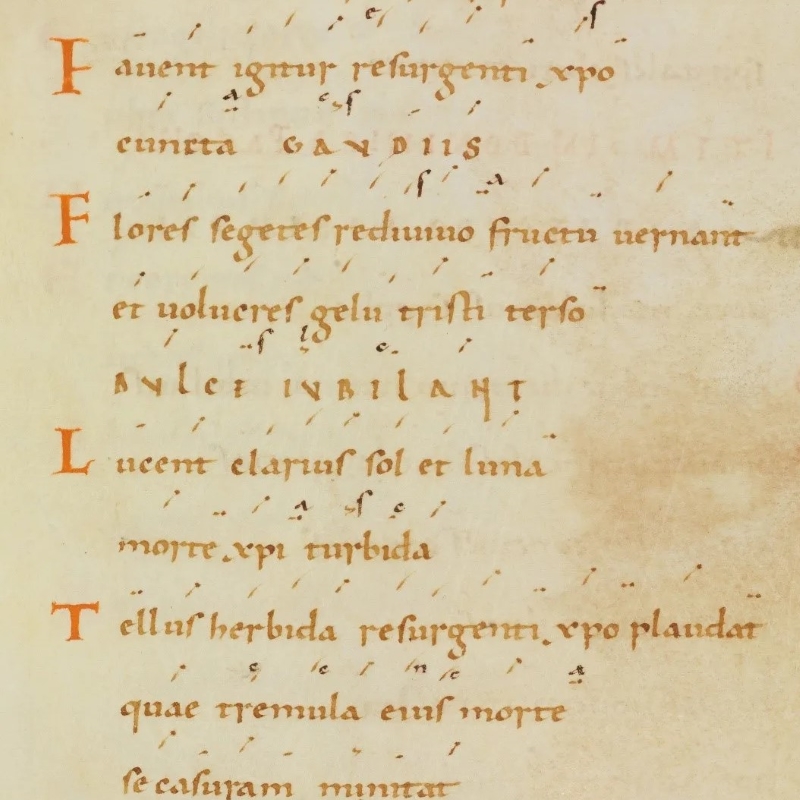 Fauent igitur resurgenti xpo
cuncta GAVDIIS
Flores segetes rediuiuo fructu uernant
et uolucres gelu tristi terso
DVLCE IVBILANT
Lucent clarius sol et luna
morte xpi turbida
Tellus herbida resurgenti xpo plaudat
quae tremula eius morte
se casuram minitat